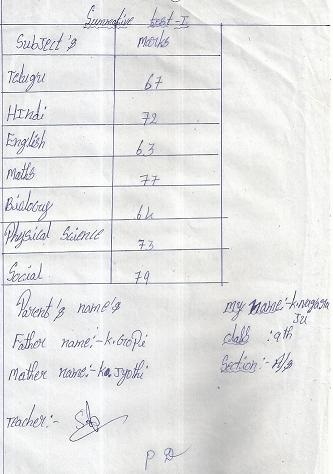 Summative test-I
Subject's marks
Telugu 67
Hindi 72
English 63
Maths 77
Biology 64
Physical Science 73
Social 79
Parent's name's
my name:-K.
Father name:-K.Gopi
class : 9th
Mother name:- Jyothi
Section:-A/s
Teacher:-
P